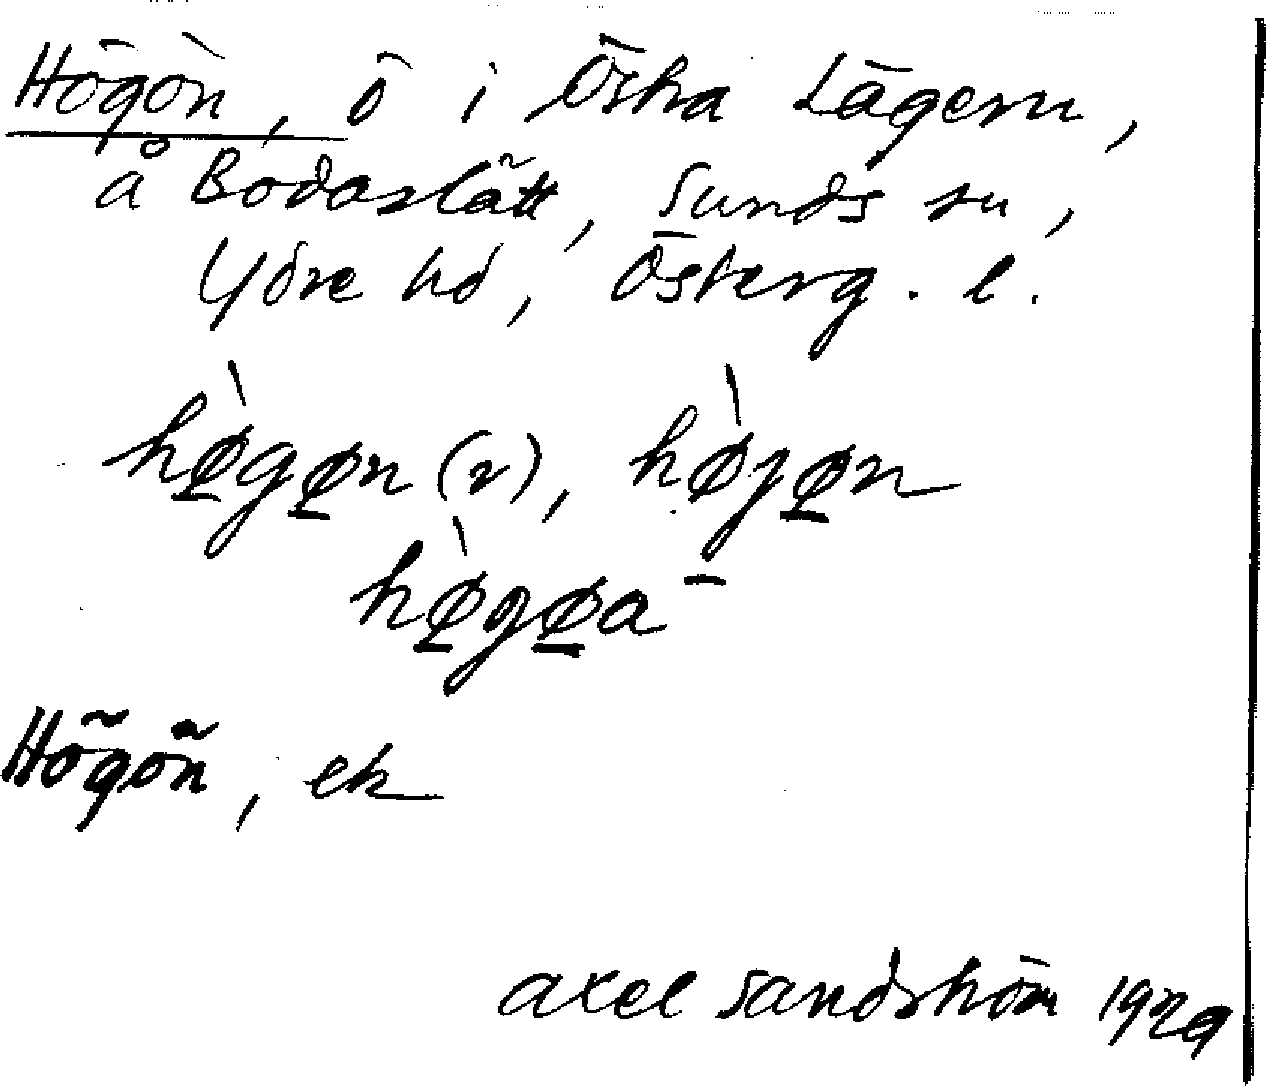 Högön, ö i Östra Lägern,
å Bodaslätt, Sunds sn,
Ydre hd, Österg. l.
hø̀gøn (r), hø̀jøn
hø̀gøa
Högön, ek
Axel Sandström 1929